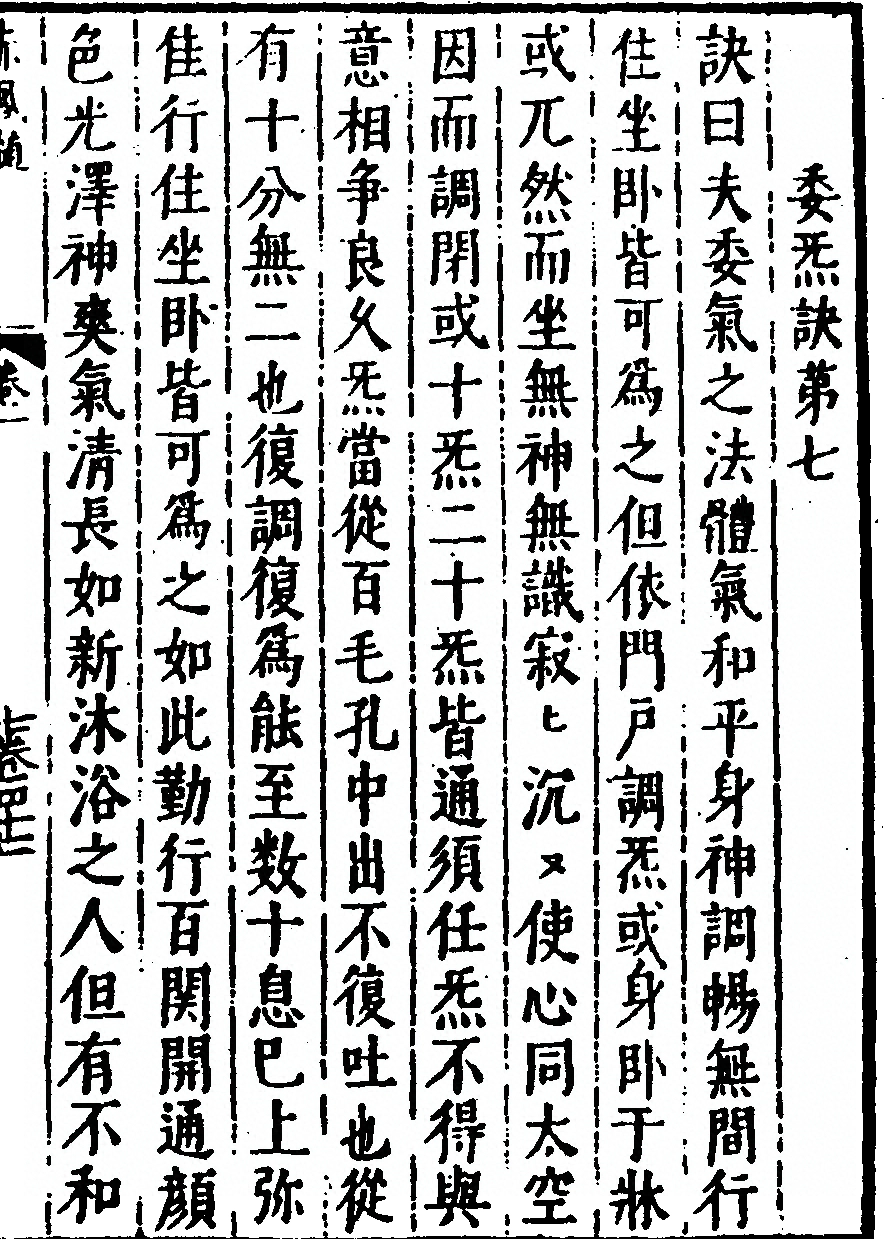 委炁訣第七
訣曰夫委氣之法體氣和平身神調暢無間行
住坐卧皆可爲之但依門戶調炁或身卧于牀
或兀然而坐無神無識寂〻沉〻使心同太空
因而調閉或十炁二十炁皆通須任炁不得與
意相争良久炁當從百毛孔中出不復吐也從
有十分無二也復調復爲能至数十息已上弥
佳行住坐卧皆可爲之如此勤行百関開通顔
色光澤神爽氣清長如新沐浴之人但有不和
卷一